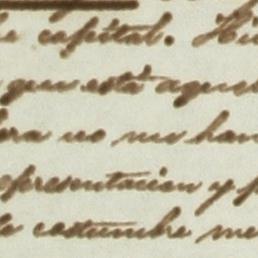 capital.
que está
no me han
representacion y
costumbre me